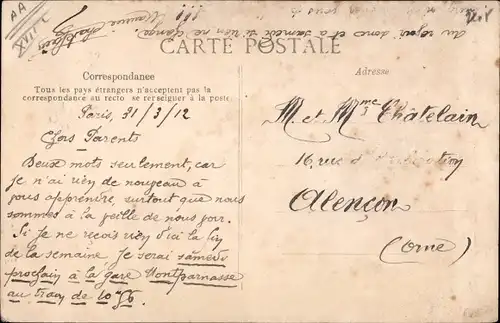 AA
XVIII
CARTE POSTALE
Correspondance
Tous les pays étrangers n'acceptent pas la
correspondance au recto se renseigner à la poste
Paris, 31/3/12
Chers Parents
Deux mots seulement, car
je n'ai rien de nouveau à
vous apprendre, surtout que nous
sommes à la veille de nous voir.
Si je ne reçois rien d'ici la fin
de la semaine je serai samedi
prochain à la gare Montparnasse
au train de 10 56
au revoir donc et à samedi si rien ne change.
Adresse
M. et Mme Châtelain
16, rue
Alençon
(Orne)